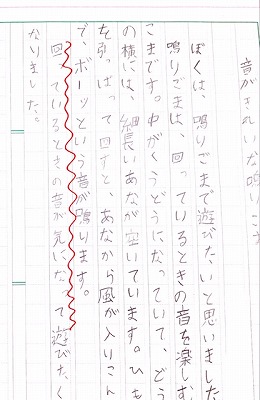 音がきれいな鳴りご
ぼくは、鳴りごまで遊びたいと思いました
鳴りごまは、回っているときの音を楽しむ
こまです。中がくうどうになっていて、どう
の横には、細長いあなが空いています。ひも
を引っぱって回すと、あなから風が入りこん
で、ボーッという音が鳴ります。
回っているときの音が気になって遊びたく
なりました。